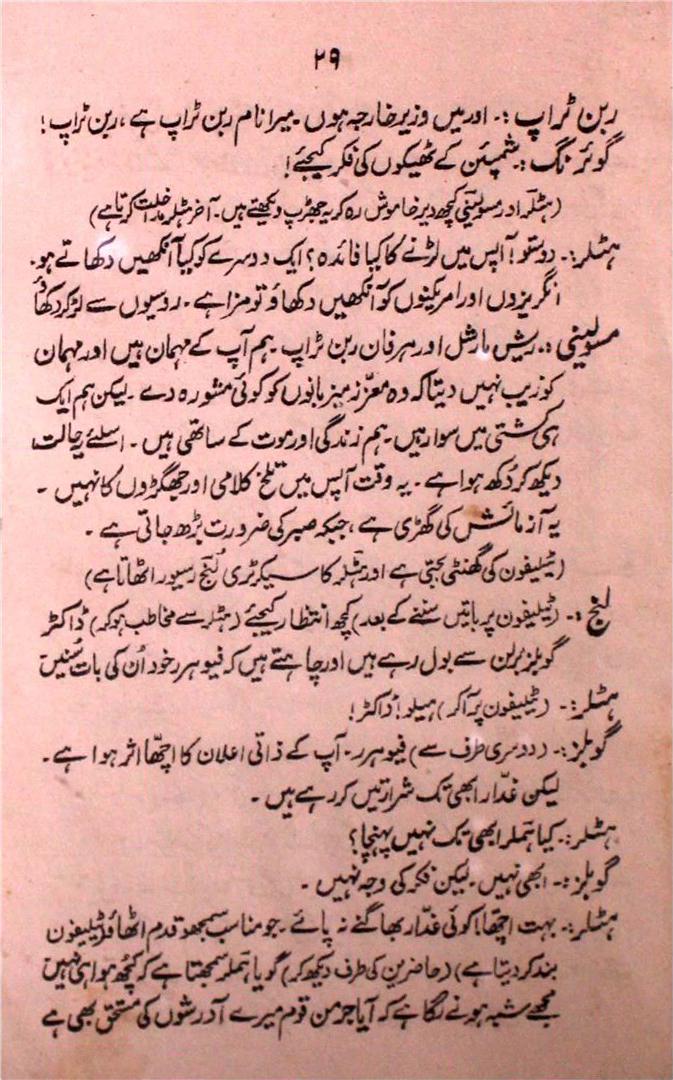 ۲۹
ربن ٹراپ :۔ اور میں وزیر خارجہ ہوں۔ میرا نام ربن ٹراپ ہے ، ربن ٹراپ!
گوئرنگ :۔ شمپئن کے ٹھیکوں کی فکر کیجئے!
(ہٹلر اور مسولینی کچھ دیر خاموش رہ کر یہ جھڑپ دیکھتے ہیں۔ آخر ہٹلر مداخلت کرتا ہے)
ہٹلر :۔ دوستو! آپس میں لڑنے کا کیا فائدہ؟ ایک دوسرے کو کیا آنکھیں دکھاتے ہو۔
انگریزوں اور امریکنوں کو آنکھیں دکھاؤ تو مزا ہے۔ روسیوں سے لڑ کر دکھاؤ
مسولینی :۔ ریش مارشل اور ہرفان ربن ٹراپ۔ ہم آپ کے مہمان ہیں اور مہمان
کو زیب نہیں دیتا کہ وہ معزز میزبانوں کو کوئی مشورہ دے۔ لیکن ہم ایک
ہی کشتی میں سوار ہیں۔ ہم زندگی اور موت کے ساتھی ہیں۔ اسلئے یہ حالت
دیکھ کر دُکھ ہوا ہے۔ یہ وقت آپس میں تلخ کلامی اور جھگڑوں کا نہیں۔
یہ آزمائش کی گھڑی ہے ، جبکہ صبر کی ضرورت بڑھ جاتی ہے۔
(ٹیلیفون کی گھنٹی بجتی ہے اور ہٹلر کا سیکرٹری لنج رسیور اٹھاتا ہے)
لنج :۔ (ٹیلیفون پر باتیں سننے کے بعد) کچھ انتظار کیجئے (ہٹلر سے مخاطب ہو کر) ڈاکٹر
گوبلز برلن سے بول رہے ہیں اور چاہتے ہیں کہ فیوہرر خود اُن کی بات سُنیں
ہٹلر :۔ (ٹیلیفون پر آکر) ہیلو! ڈاکٹر!
گوبلز :۔ (دوسری طرف سے) فیوہرر۔ آپ کے ذاتی اعلان کا اچھّا اثر ہوا ہے۔
لیکن غدّار ابھی تک شرارتیں کر رہے ہیں۔
ہٹلر :۔ کیا ہملر ابھی تک نہیں پہنچا؟
گوبلز :۔ ابھی نہیں۔ لیکن فکر کی وجہ نہیں۔
ہٹلر :۔ بہت اچھّا! کوئی غدّار بھاگنے نہ پائے۔ جو مناسب سمجھو قدم اٹھاؤ (ٹیلیفون
بند کر دیتا ہے) (حاضرین کی طرف دیکھ کر) گویا ہملر سمجھتا ہے کہ کچھ ہوا ہی نہیں
مجھے شبہ ہونے لگا ہے کہ آیا جرمن قوم میرے آدرشوں کی مستحق بھی ہے